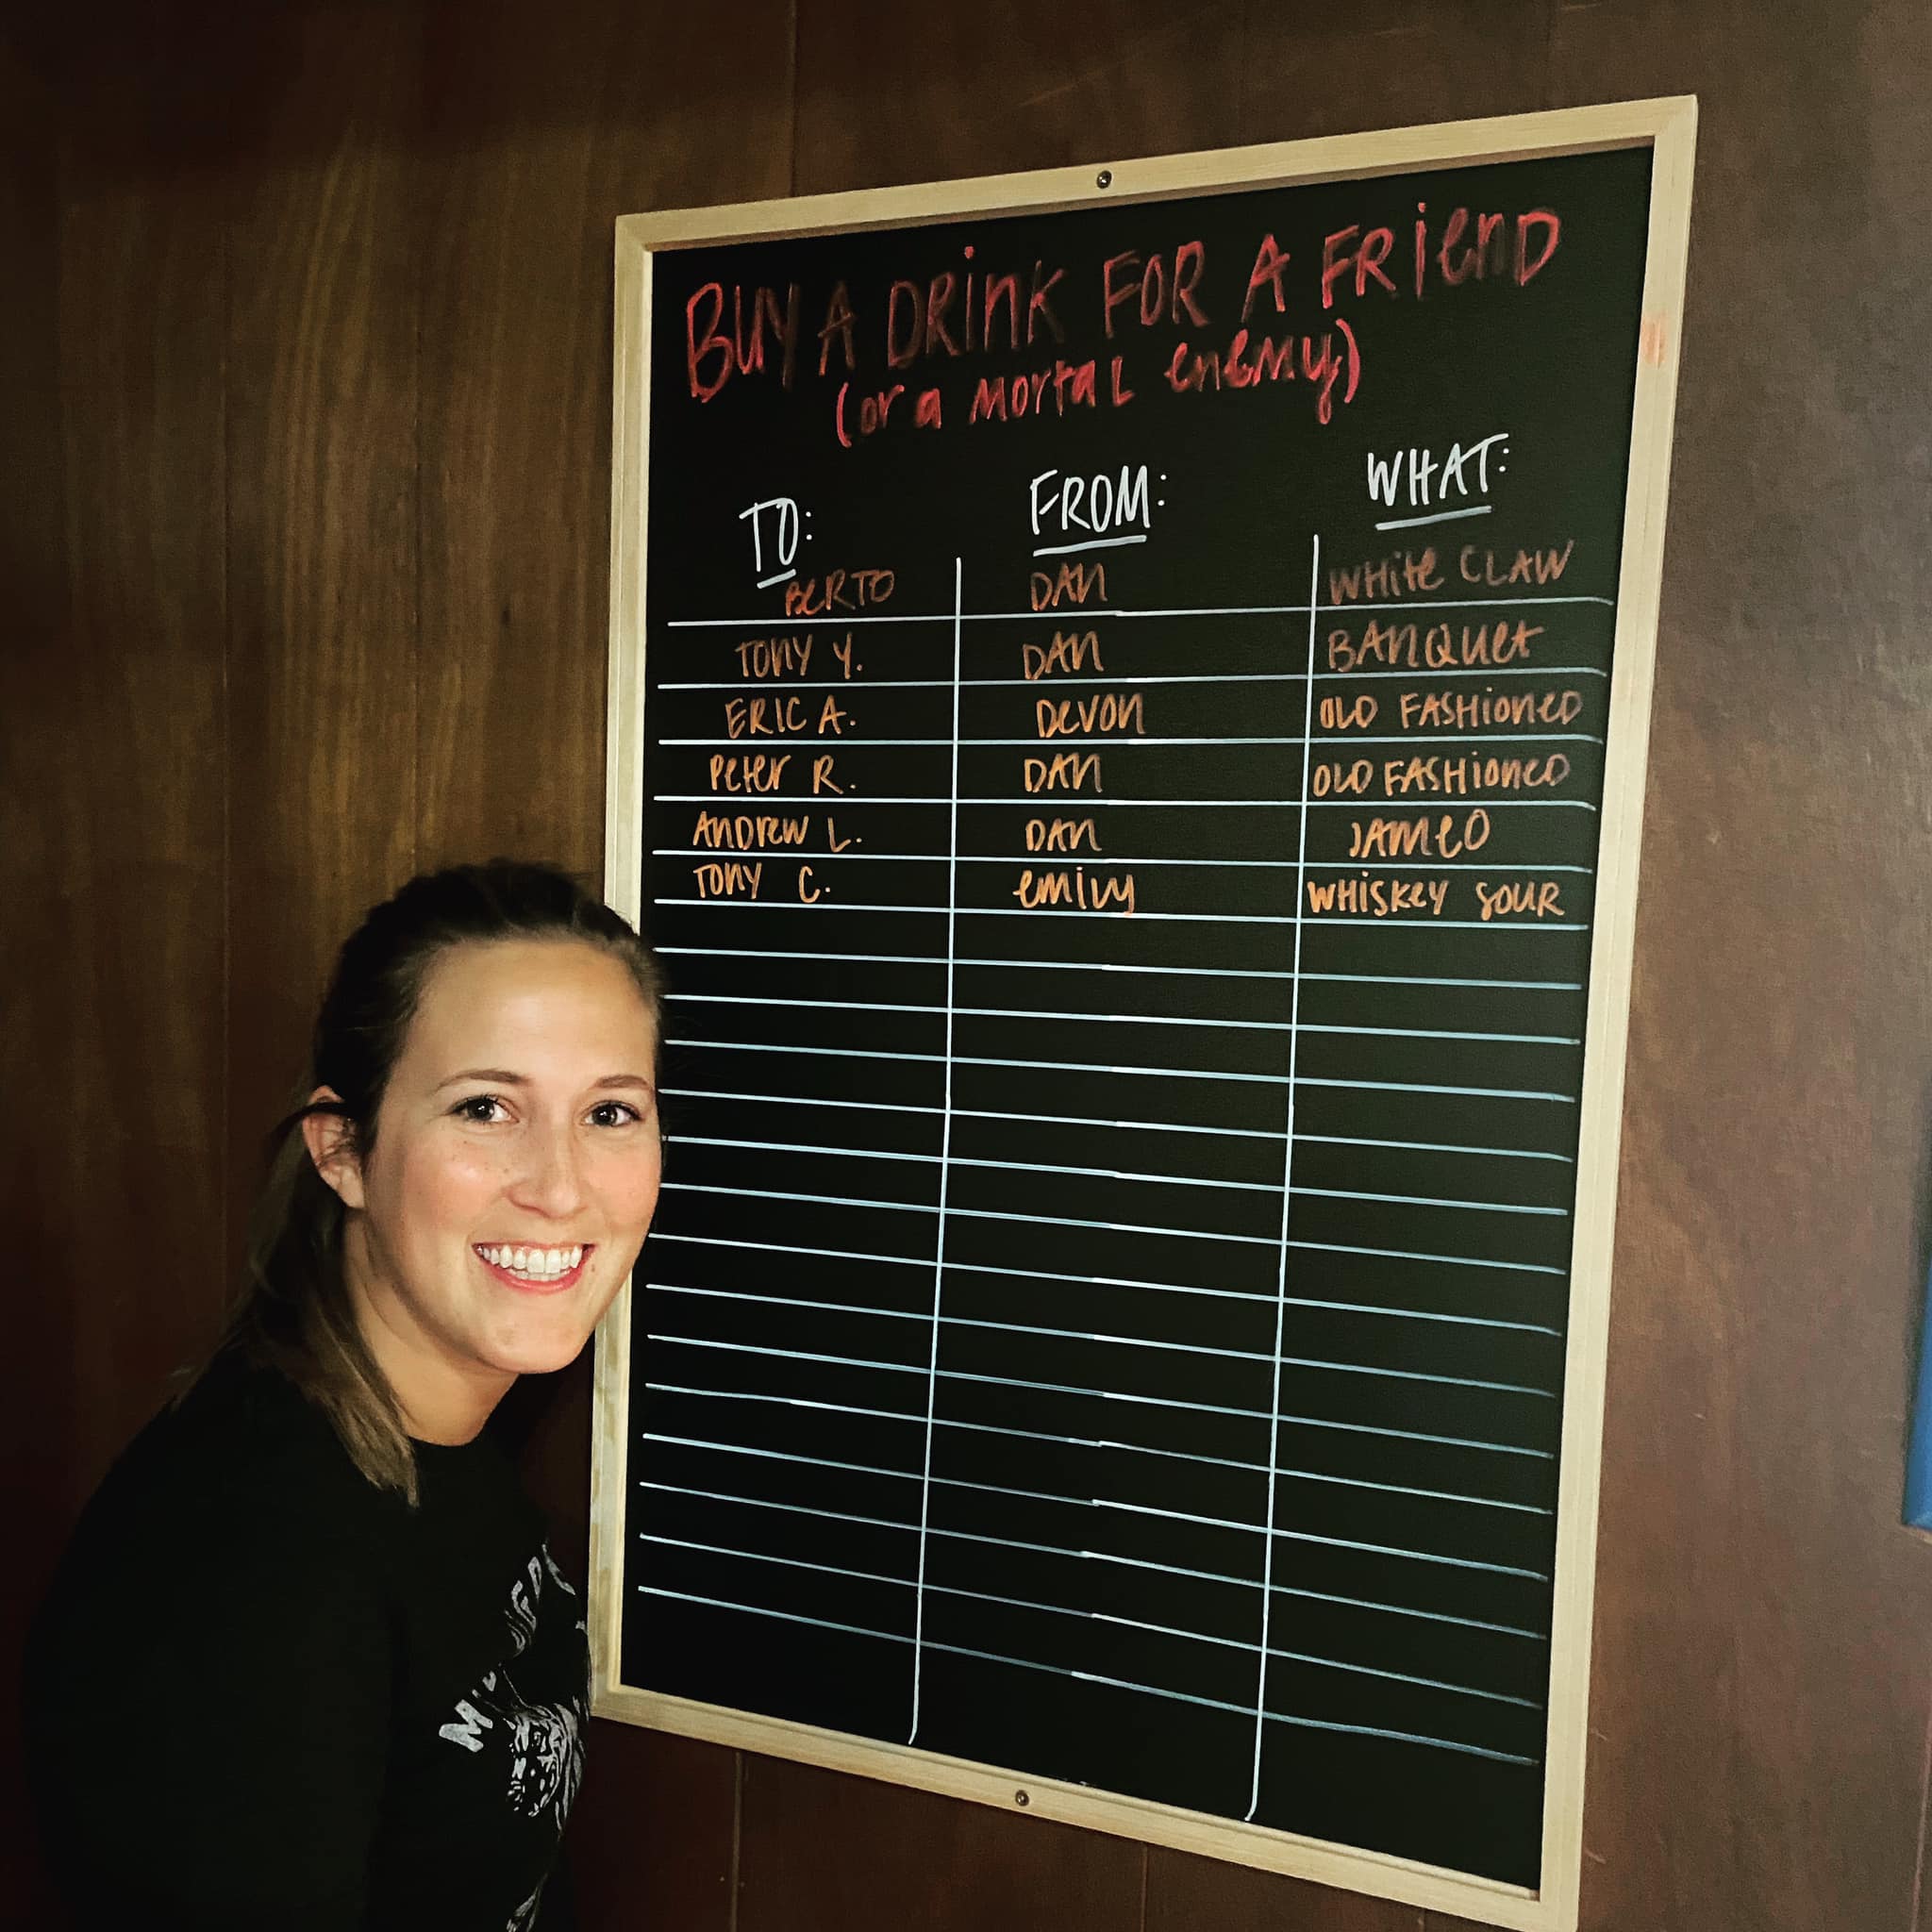 BUY A DRINK FOR A FRIEND
(or a mortal enemy)
TO: FROM: WHAT:
BERTO DAN WHITE CLAW
TONY Y. DAN BANQUET
ERIC A. DEVON OLD FASHIONED
PETER R. DAN OLD FASHIONED
ANDREW L. DAN JAMEO
TONY C. EMILY WHISKEY SOUR